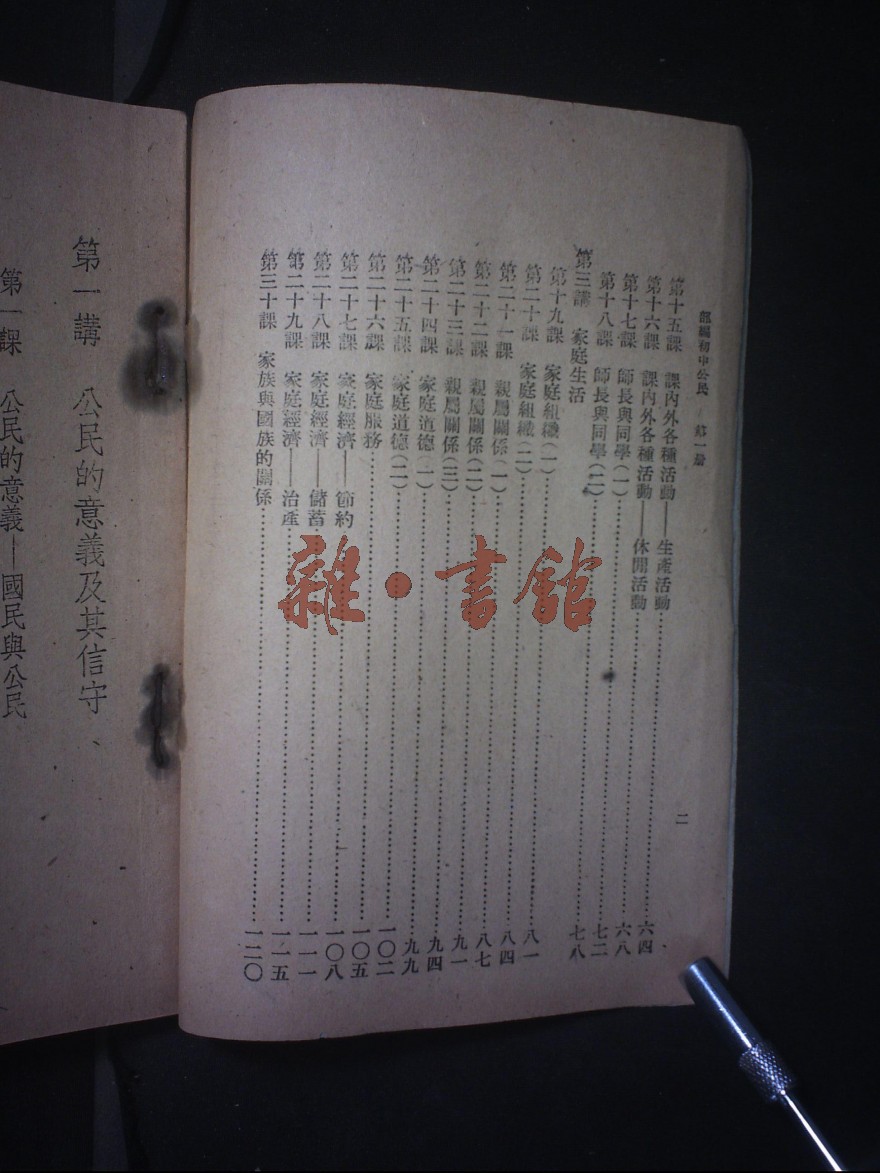 部編初中公民　第一册
二
第十五課　課內外各種活動——生產活動……六四
第十六課　課內外各種活動——休閒活動……六八
第十七課　師長與同學（一）……七二
第十八課　師長與同學（二）……七八
第三講　家庭生活
第十九課　家庭組織（一）……八一
第二十課　家庭組織（二）……八四
第二十一課　親屬關係（一）……八七
第二十二課　親屬關係（二）……九一
第二十三課　親屬關係（三）……九四
第二十四課　家庭道德（一）……九九
第二十五課　家庭道德（二）……一〇二
第二十六課　家庭服務……一〇五
第二十七課　家庭經濟——節約……一〇八
第二十八課　家庭經濟——儲蓄……一一一
第二十九課　家庭經濟——治產……一一五
第三十課　家族與國族的關係……一二〇
第一講　公民的意義及其信守
第一課　公民的意義—國民與公民
雜·書館